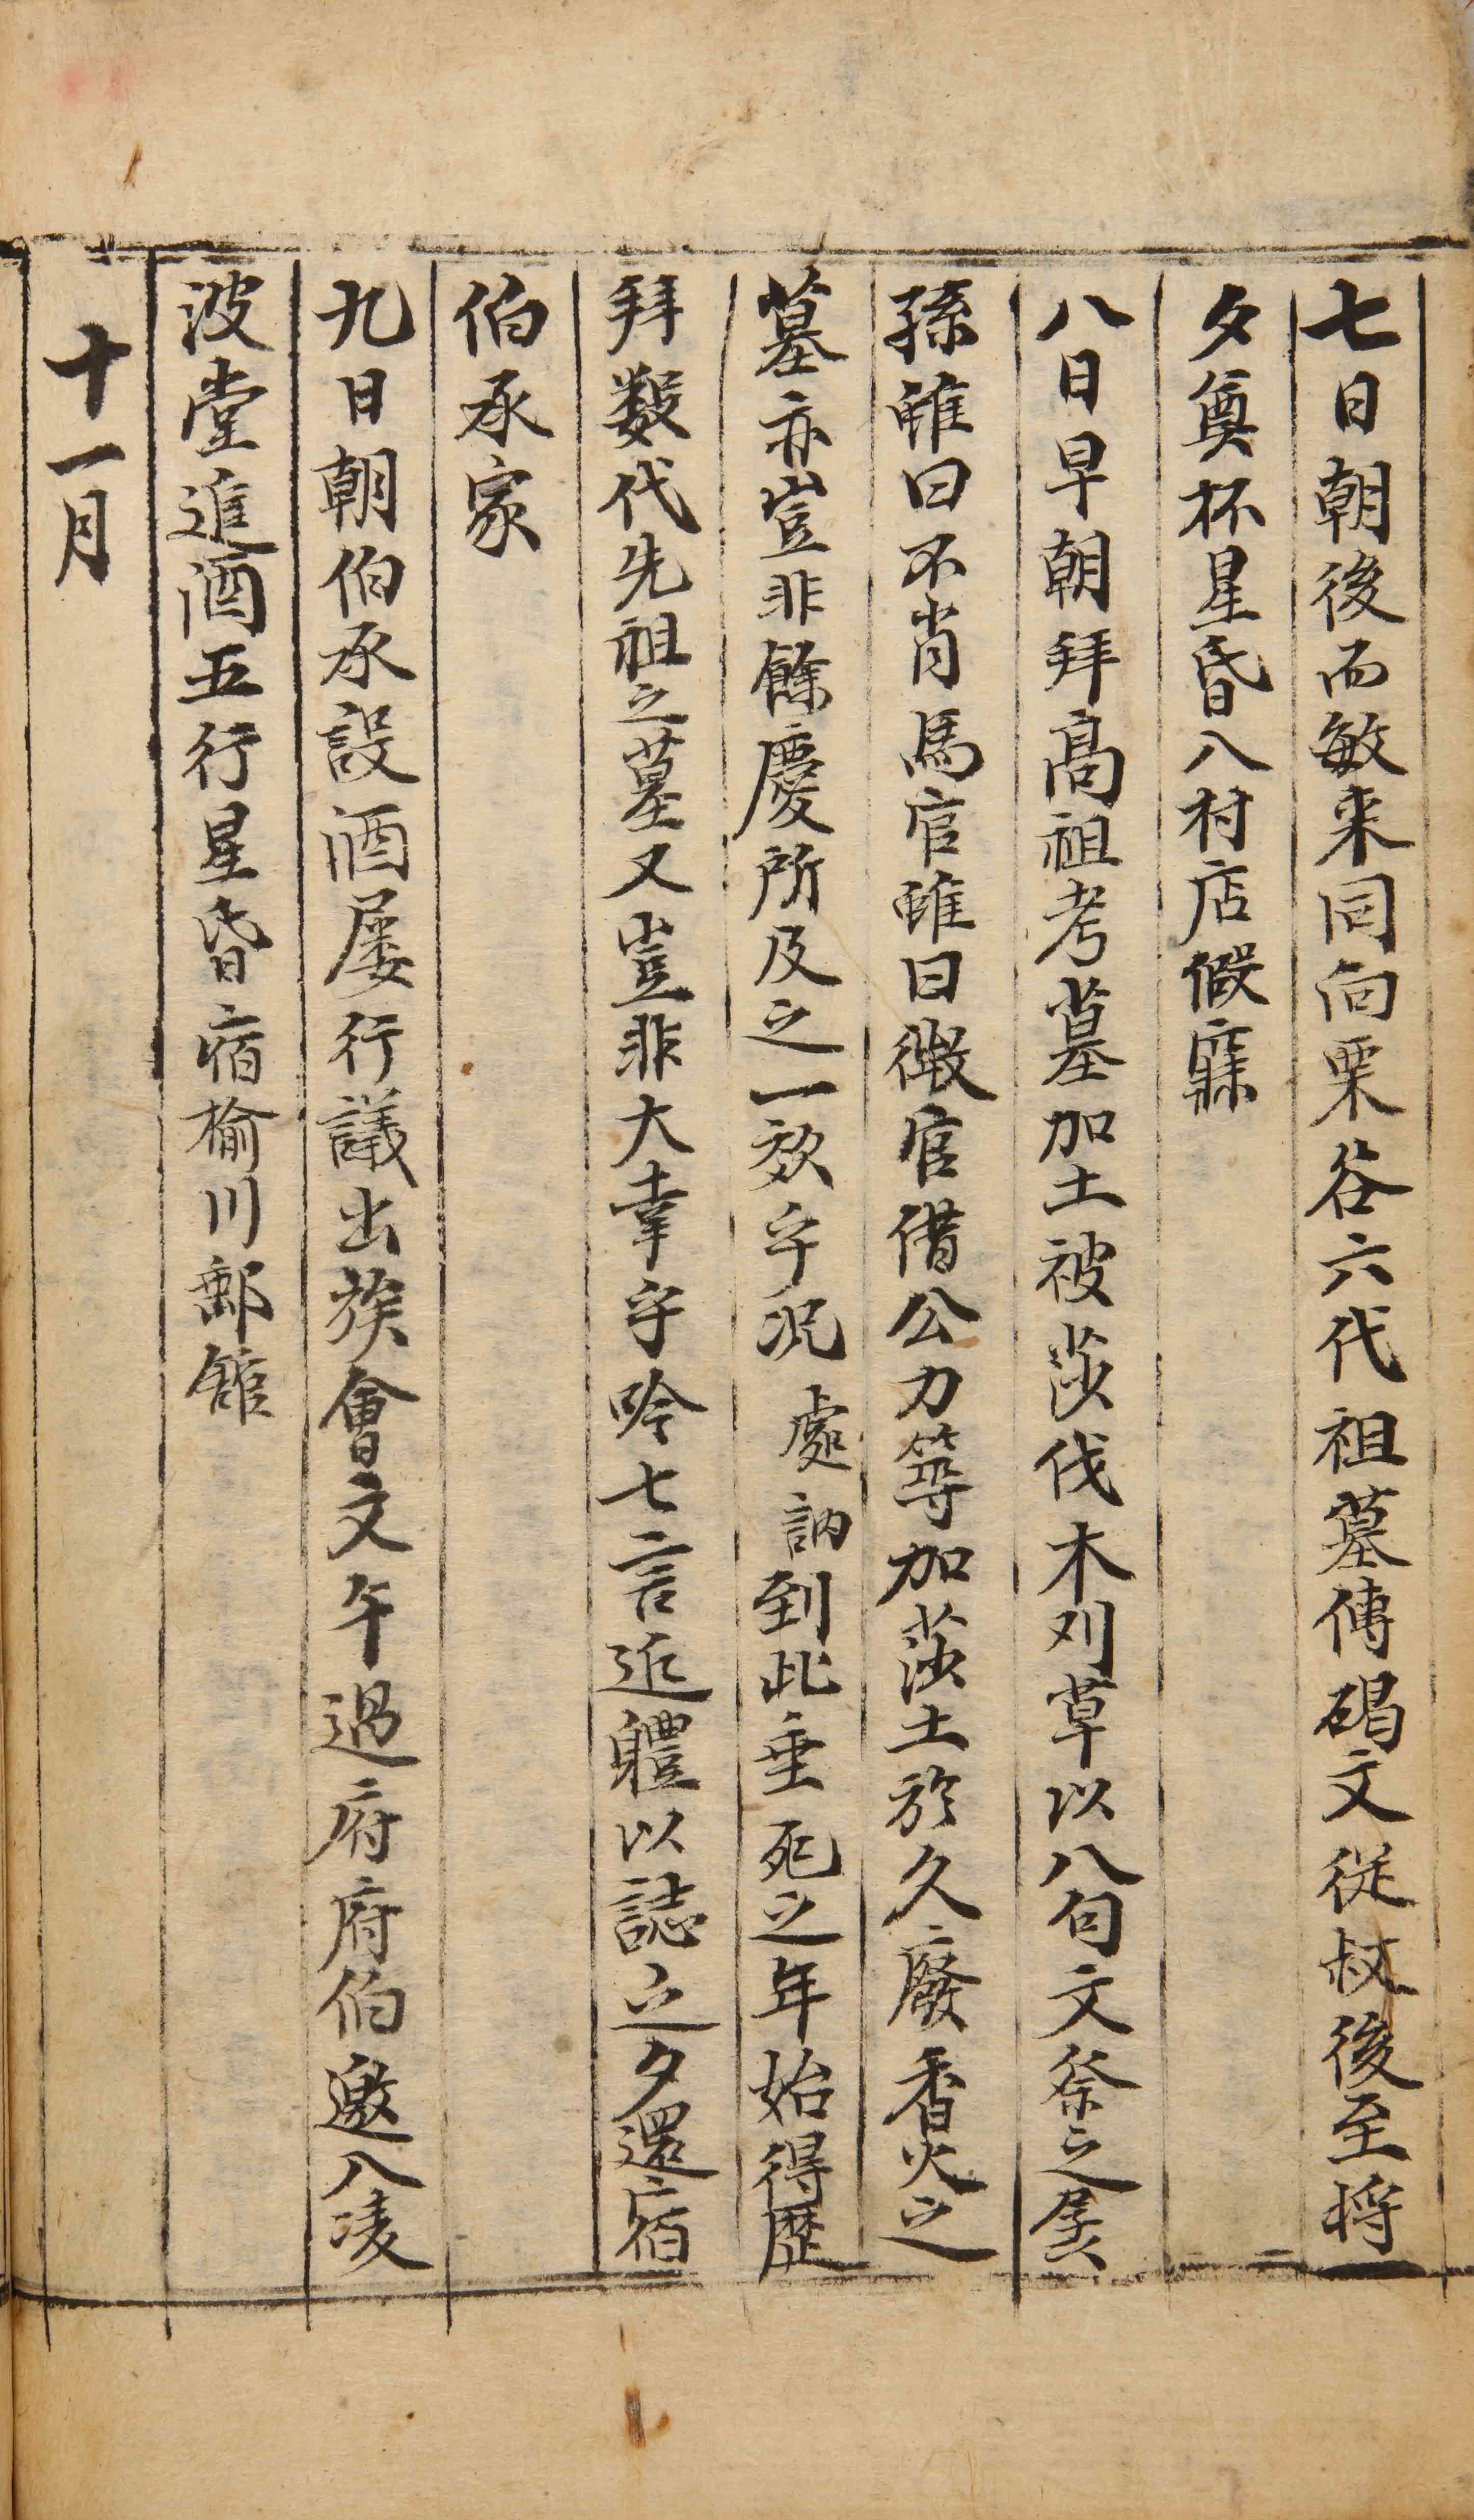 七日朝後而敏来同向栗谷六代祖墓傳碣文從叔後至將
夕奠杯星昏入村店假寐
八日早朝拜高祖考墓加土被莎伐木刈草以八旬文祭之孱
孫雖曰不肖爲官雖曰微官借公力等加莎土於久廢香火之
墓亦豈非餘慶所及之一效乎况 處訥到此垂死之年始得歷
拜數代先祖之墓又豈非大幸乎吟七言近體以誌之夕還宿
伯承家
九日朝伯承設酒屡行議出族會文午過府府伯邀入凌
波堂進酒五行星昏宿楡川郵館
十一月